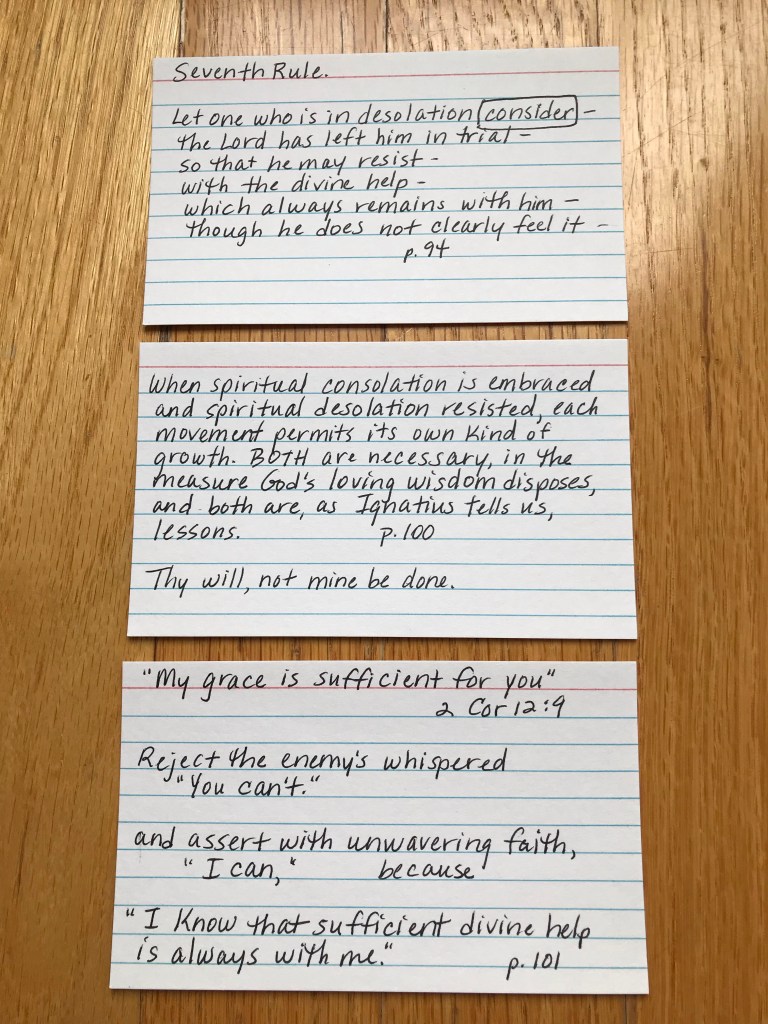 Seventh Rule.
Let one who is in desolation consider –
the Lord has left him in trial –
so that he may resist –
with the divine help –
which always remains with him –
though he does not clearly feel it –
p. 94
When spiritual consolation is embraced
and spiritual desolation resisted, each
movement permits its own kind of
growth. BOTH are necessary, in the
measure God's loving wisdom disposes,
and both are, as Ignatius tells us,
lessons. p. 100
Thy will, not mine be done.
"My grace is sufficient for you"
2 Cor 12:9
Reject the enemy's whispered
"You can't."
and assert with unwavering faith,
"I can," because
"I know that sufficient divine help
is always with me."
p. 101